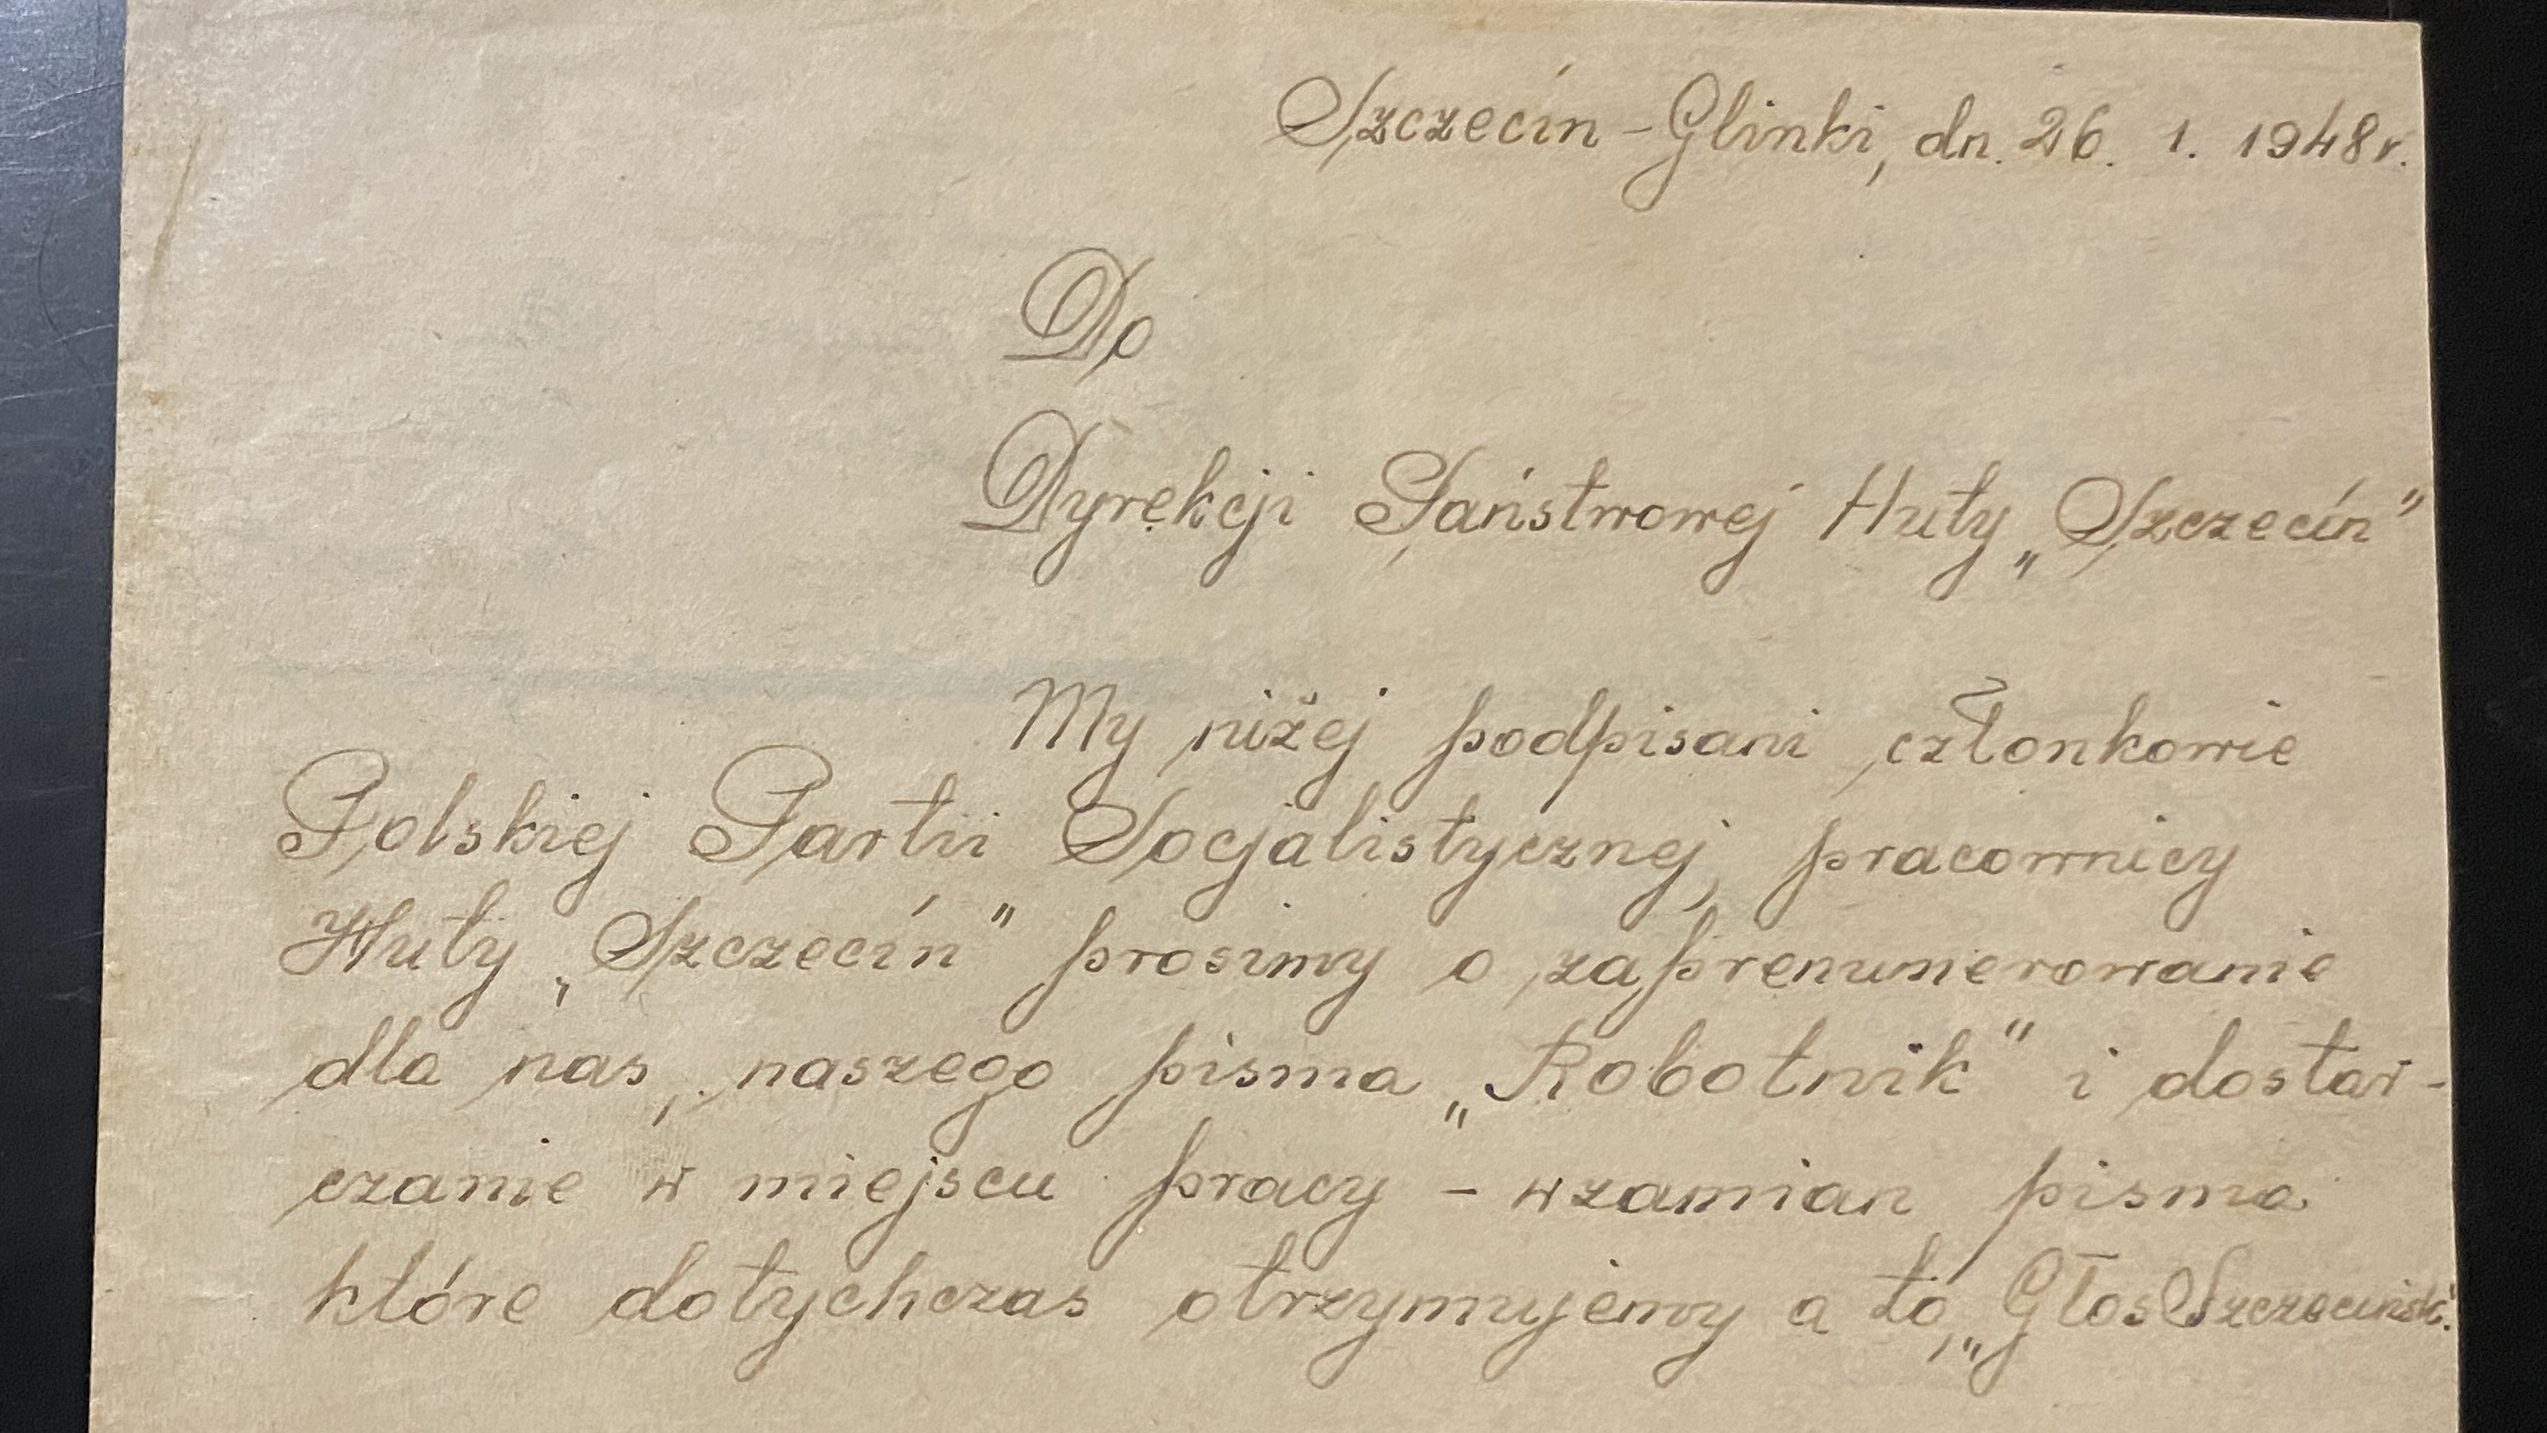 Szczecin - Glinki, dn. 26. 1. 1948 r.
Do
Dyrekcji Państwowej Huty „Szczecin"
My niżej podpisani członkowie
Polskiej Partii Socjalistycznej, pracownicy
Huty „Szczecin" prosimy o zaprenumerowanie
dla nas, naszego pisma „Robotnik" i dostar-
czanie w miejscu pracy - wzamian pisma
które dotychczas otrzymujemy a to, „Głos Szczeciński".